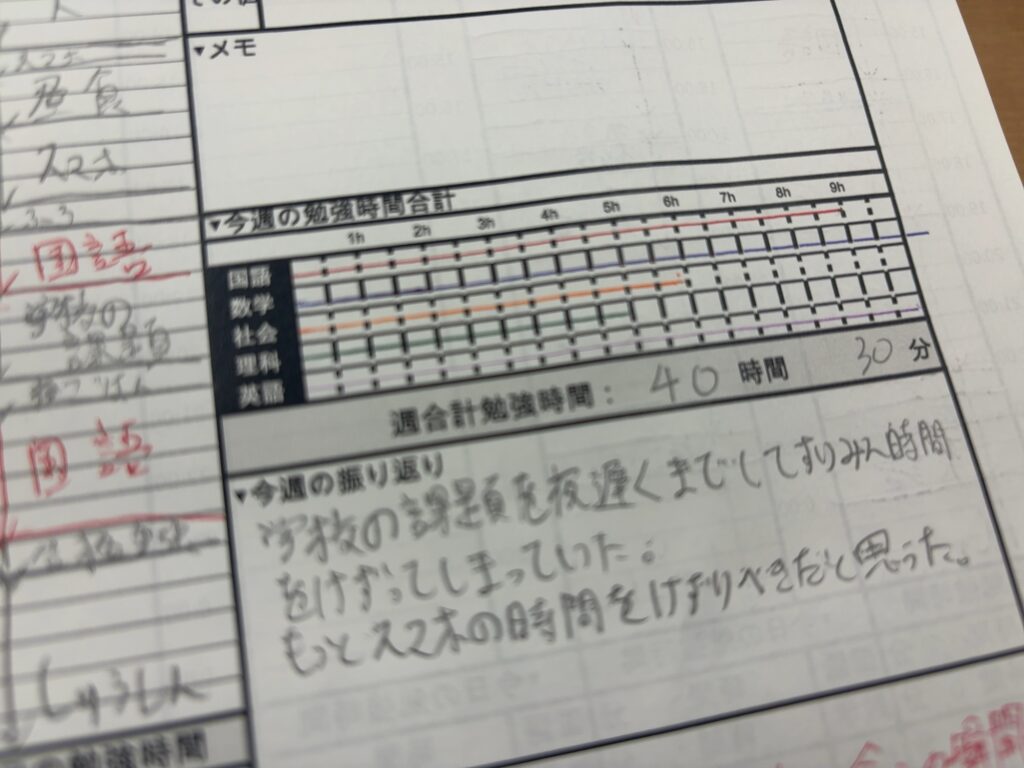 その他
スマホ
国語
学校の
課題
晩ごはん
国語
しゅうしん
の勉強時間
▼メモ
▼今週の勉強時間合計
1h 2h 3h 4h 5h 6h 7h 8h 9h
国語
数学
社会
理科
英語
週合計勉強時間： 40 時間 30 分
▼今週の振り返り
学校の課題を夜遅くまでしてすいみん時間
をけずってしまっていた。
もっとスマホの時間をけずるべきだと思った。